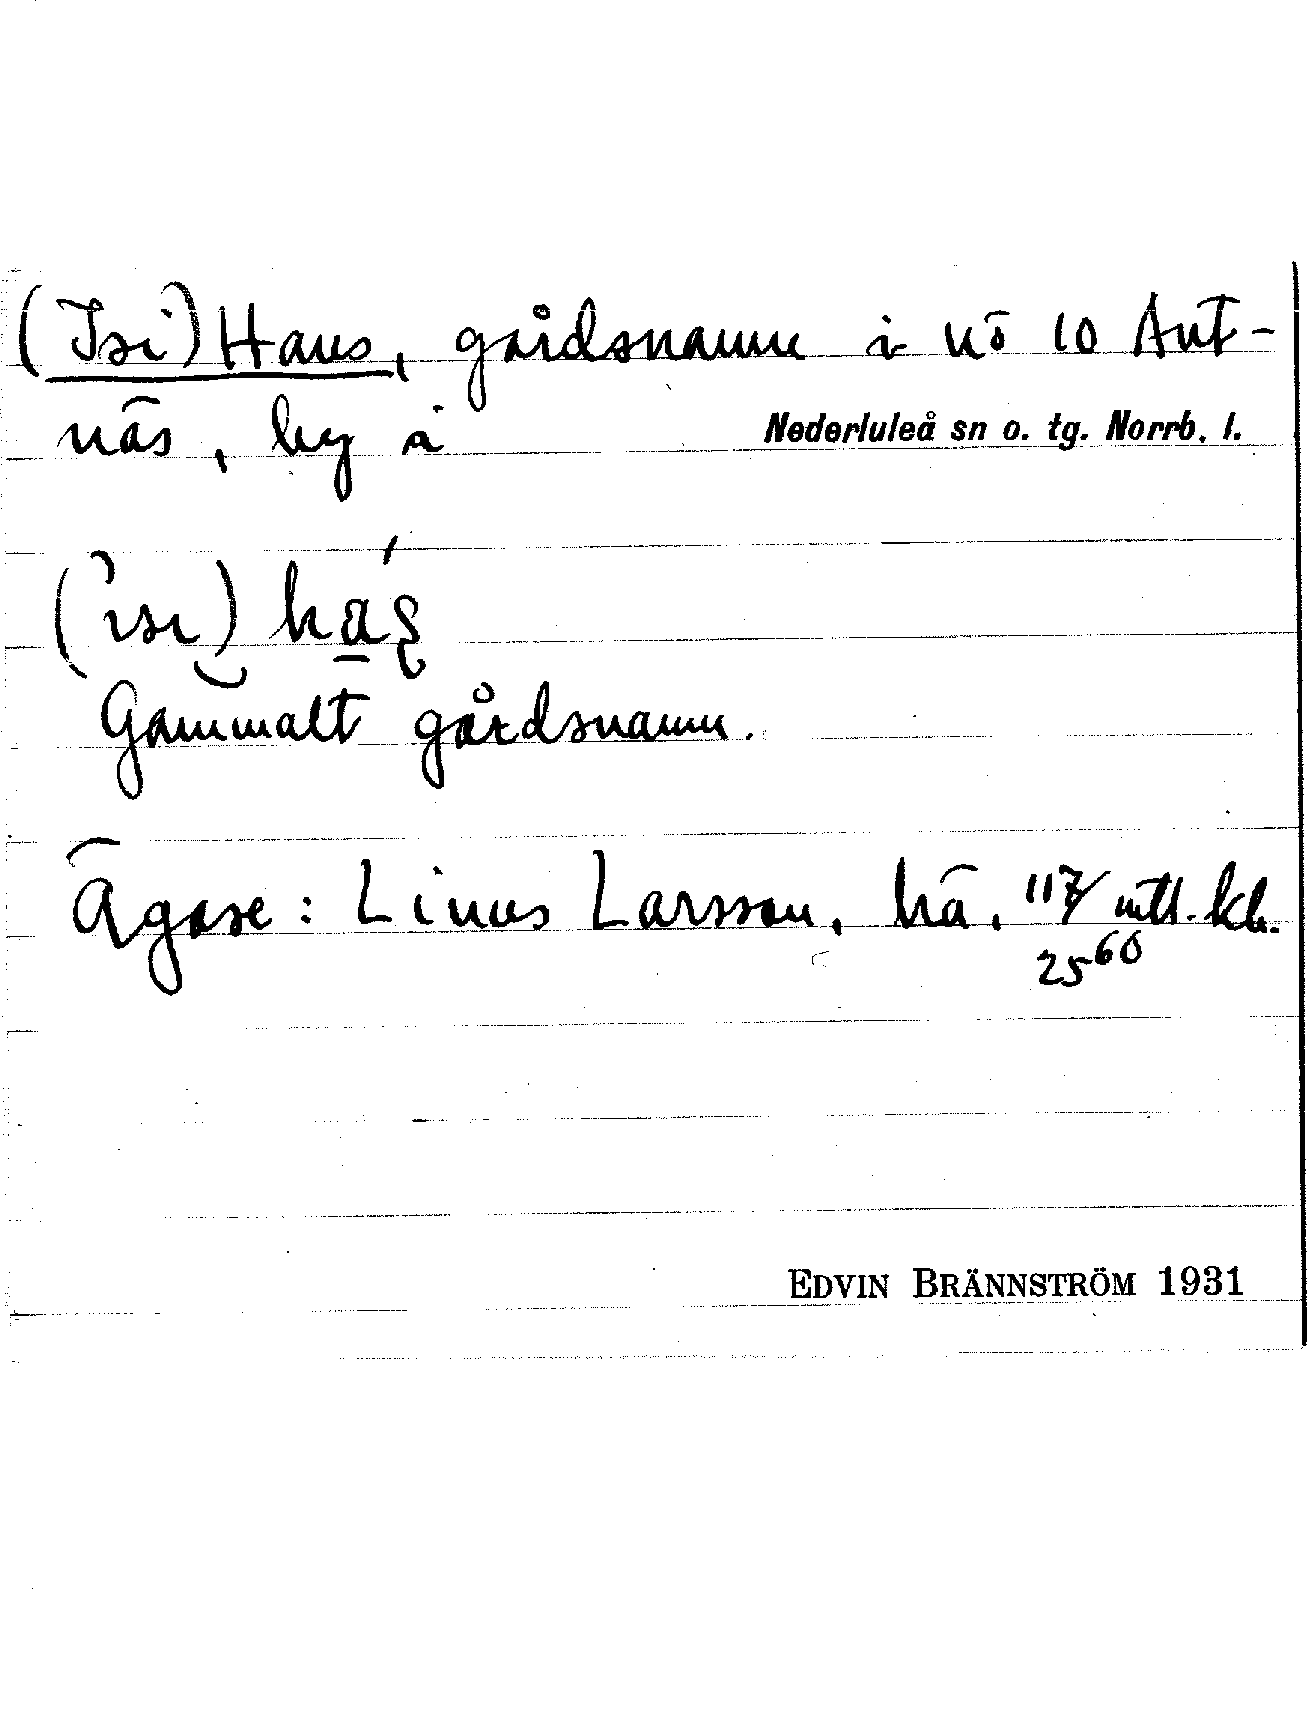 (Isi) Hans, gårdsnamn i nō 10 Ant-
näs, by i Nederluleå sn o. tg. Norrb. l.
(isi)
Gammalt gårdsnamn.
Ägare: Linus Larsson, hä. 117/2560 mtl. kb.
EDVIN BRÄNNSTRÖM 1931